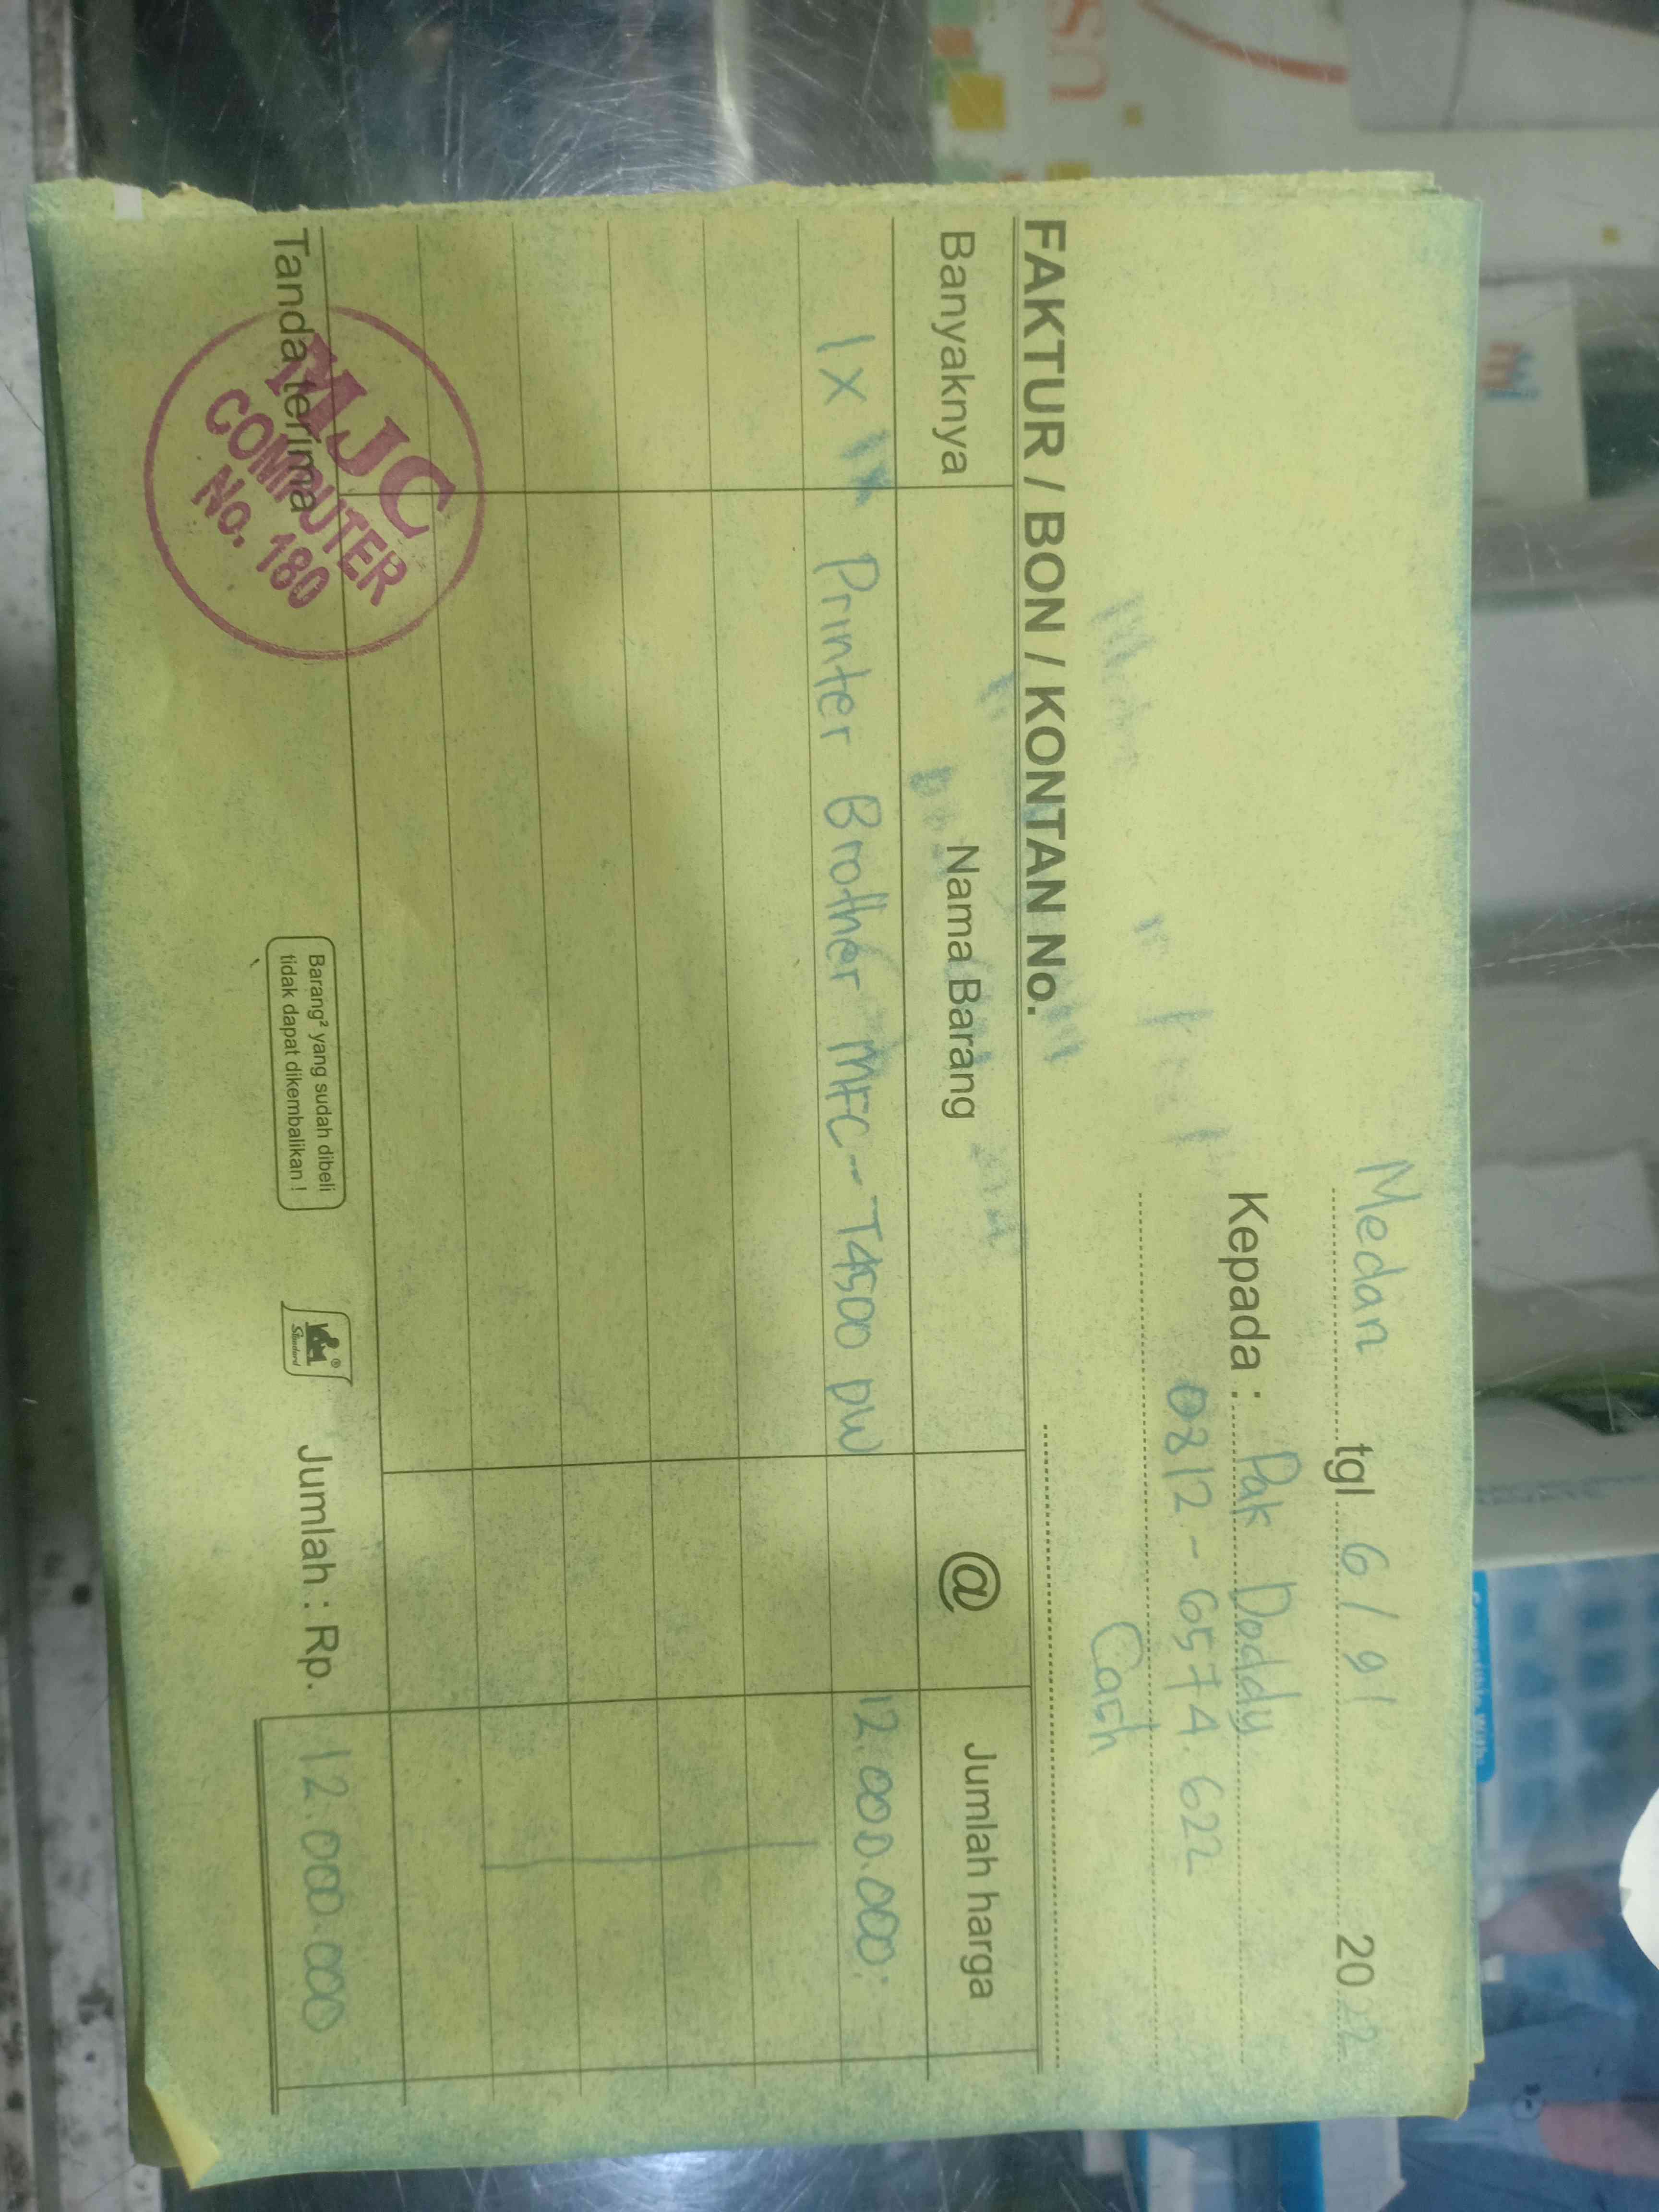 Medan tgl 6/9/ 2022
Kepada : Pak Doddy
0812-6574.622
Cash
FAKTUR / BON / KONTAN No.
Banyaknya Nama Barang @ Jumlah harga
1 x Printer Brother MFC-T4500 DW 12.000.000
Tanda terima
MJC
COMPUTER
No. 180
Barang² yang sudah dibeli
tidak dapat dikembalikan !
Standard
Jumlah : Rp. 12.000.000